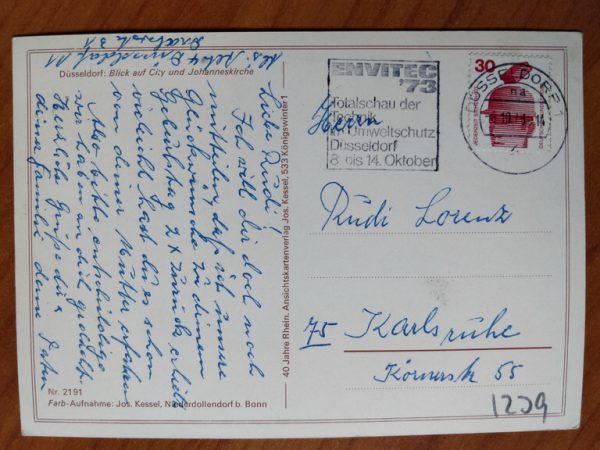 Düsseldorf: Blick auf City und Johanneskirche
Liebe Rudi!
Ich will dir doch noch
mitteilen, daß ich unsere
Glückwünsche zu deinem
Geburtstag 2 x zurück erhielt
vielleicht hast du es schon
von deiner Mutter erfahren
Also bitte, entschuldige
wir haben an dich gedacht.
Herzliche Grüße dir &
deine Familie dein
Nr. 2191
Farb-Aufnahme: Jos. Kessel, Niederdollendorf b. Bonn
40 Jahre Rhein. Ansichtskartenverlag Jos. Kessel, 533 Königswinter 1
ENVITEC
'73
Totalschau der
Technik
im Umweltschutz
Düsseldorf
8. bis 14. Oktober
30
DÜSSELDORF 1
na
Herrn
Rudi Lorenz
75 Karlsruhe
Körnerstr 55
1209